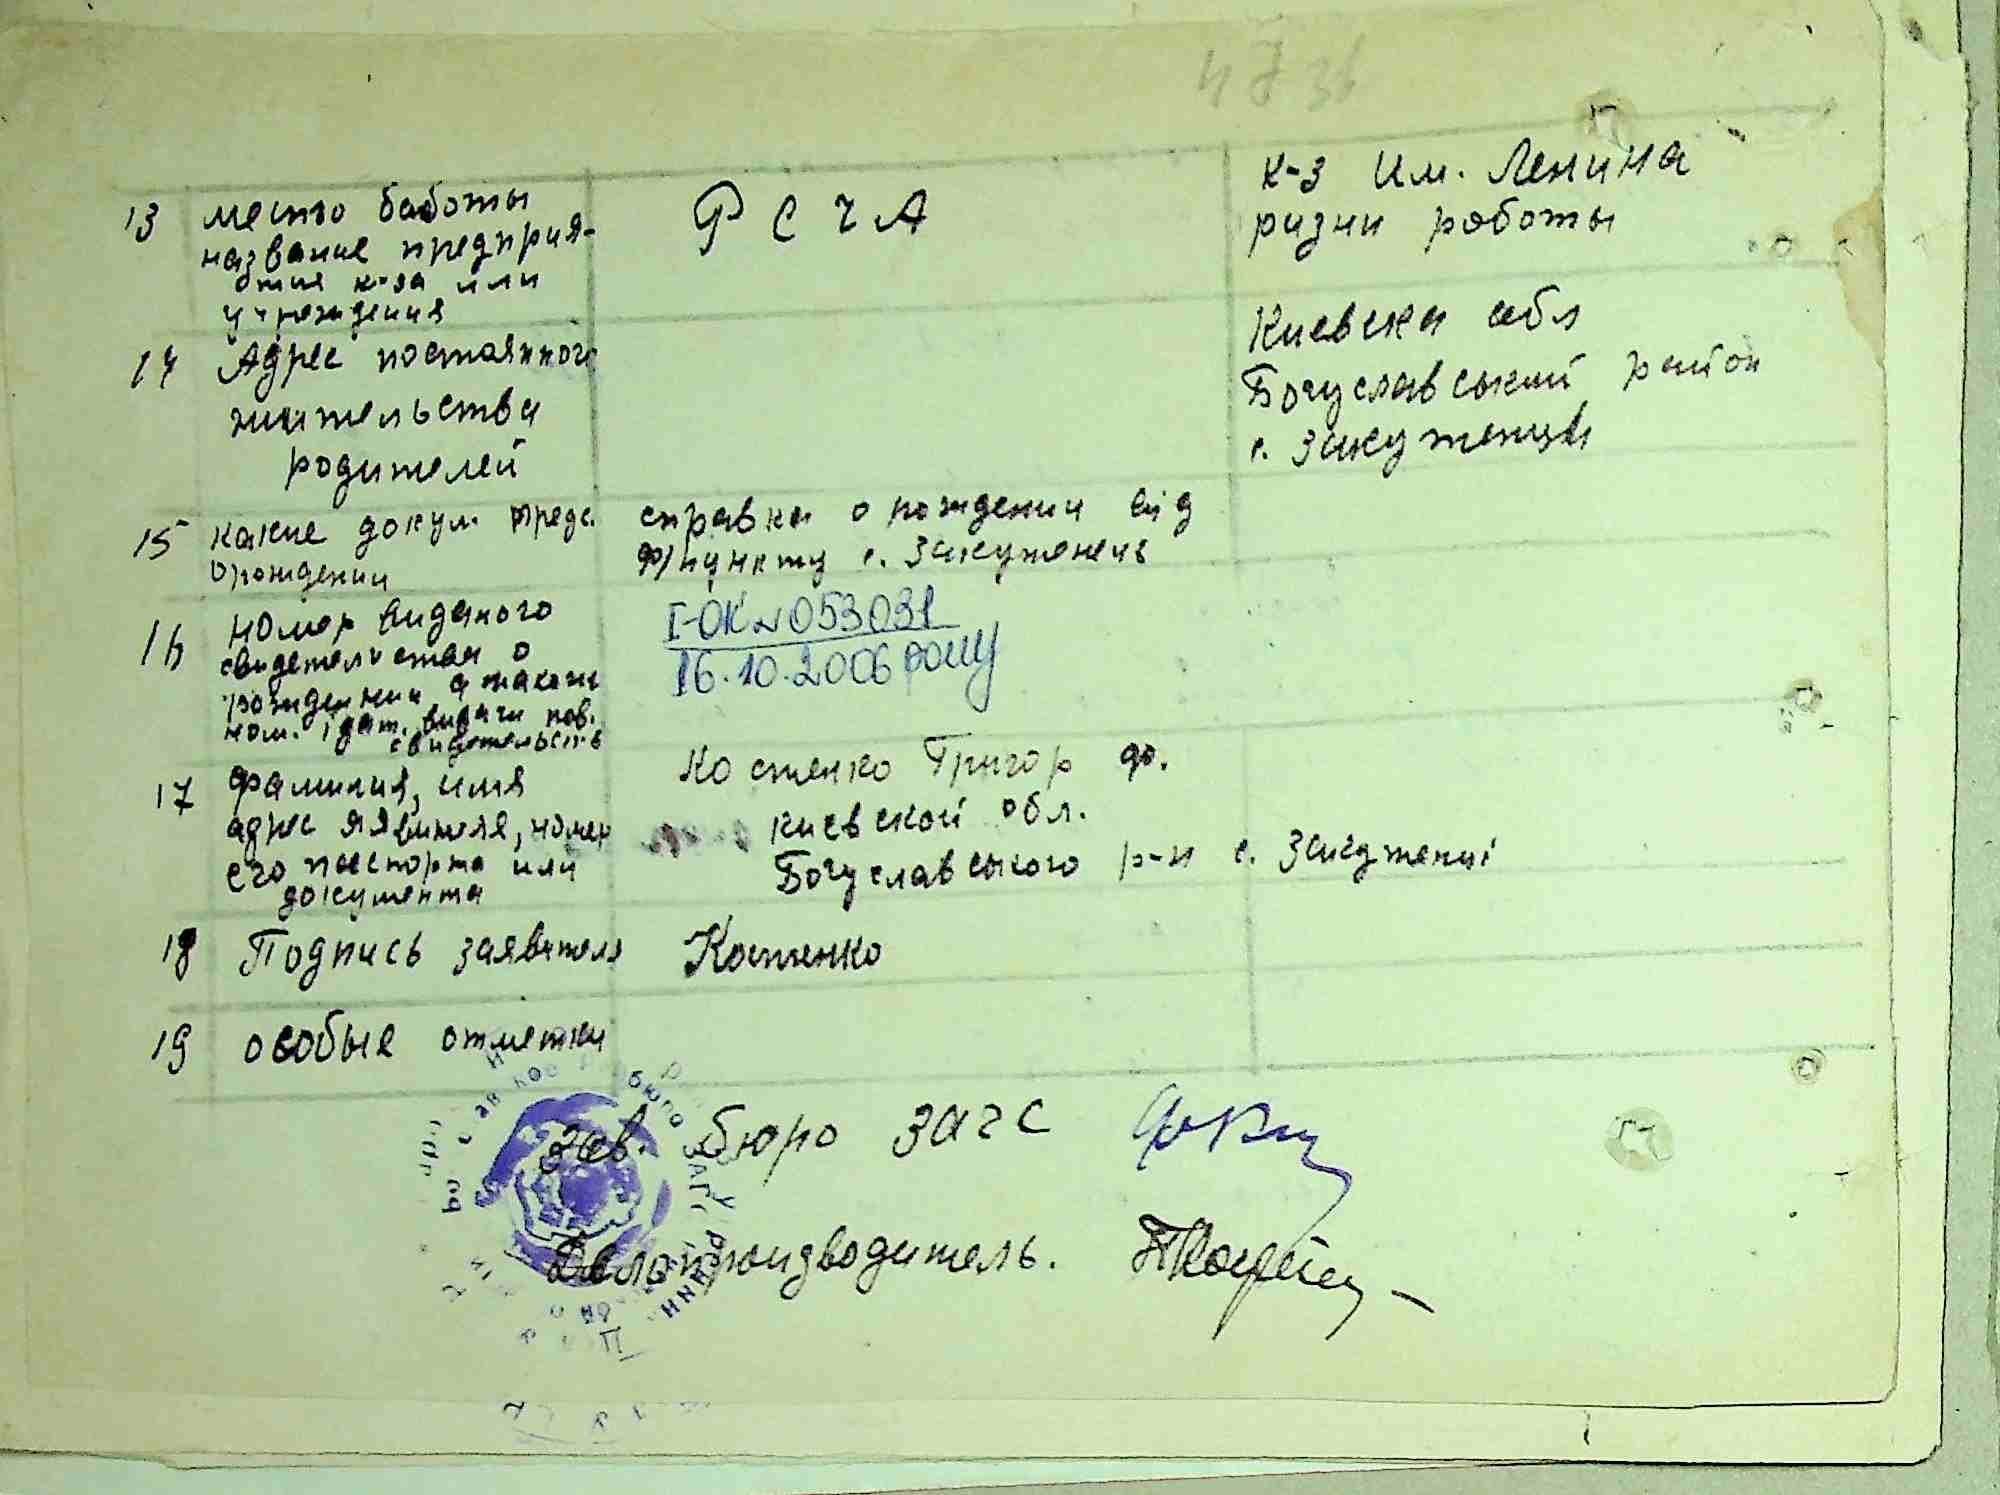 13 место работы
название предприя-
тия к-за или
учреждения
Р С Ч А
к-з Им. Ленина
ризни работы
14 Адрес постоянного
жительства
родителей
Киевска обл
Богуславський район
с. Закутенци
15 какие докум. предс.
о рождении
справка о рождении від
ф/пункту с. Закутенець
16 номер виданого
свидетельства о
рождении а также
ном. і дат. видачи пов.
свидетельств
I-ОК № 053031
16.10.2006 року
17 фамилия, имя
адрес заявителя, номер
его паспорта или
документа
Костенко Григор
Киевской обл.
Богуславського р-н с.
18 Подпись заявителя Костенко
19 особые отметки
Зав. бюро ЗАГС
Делопроизводитель.